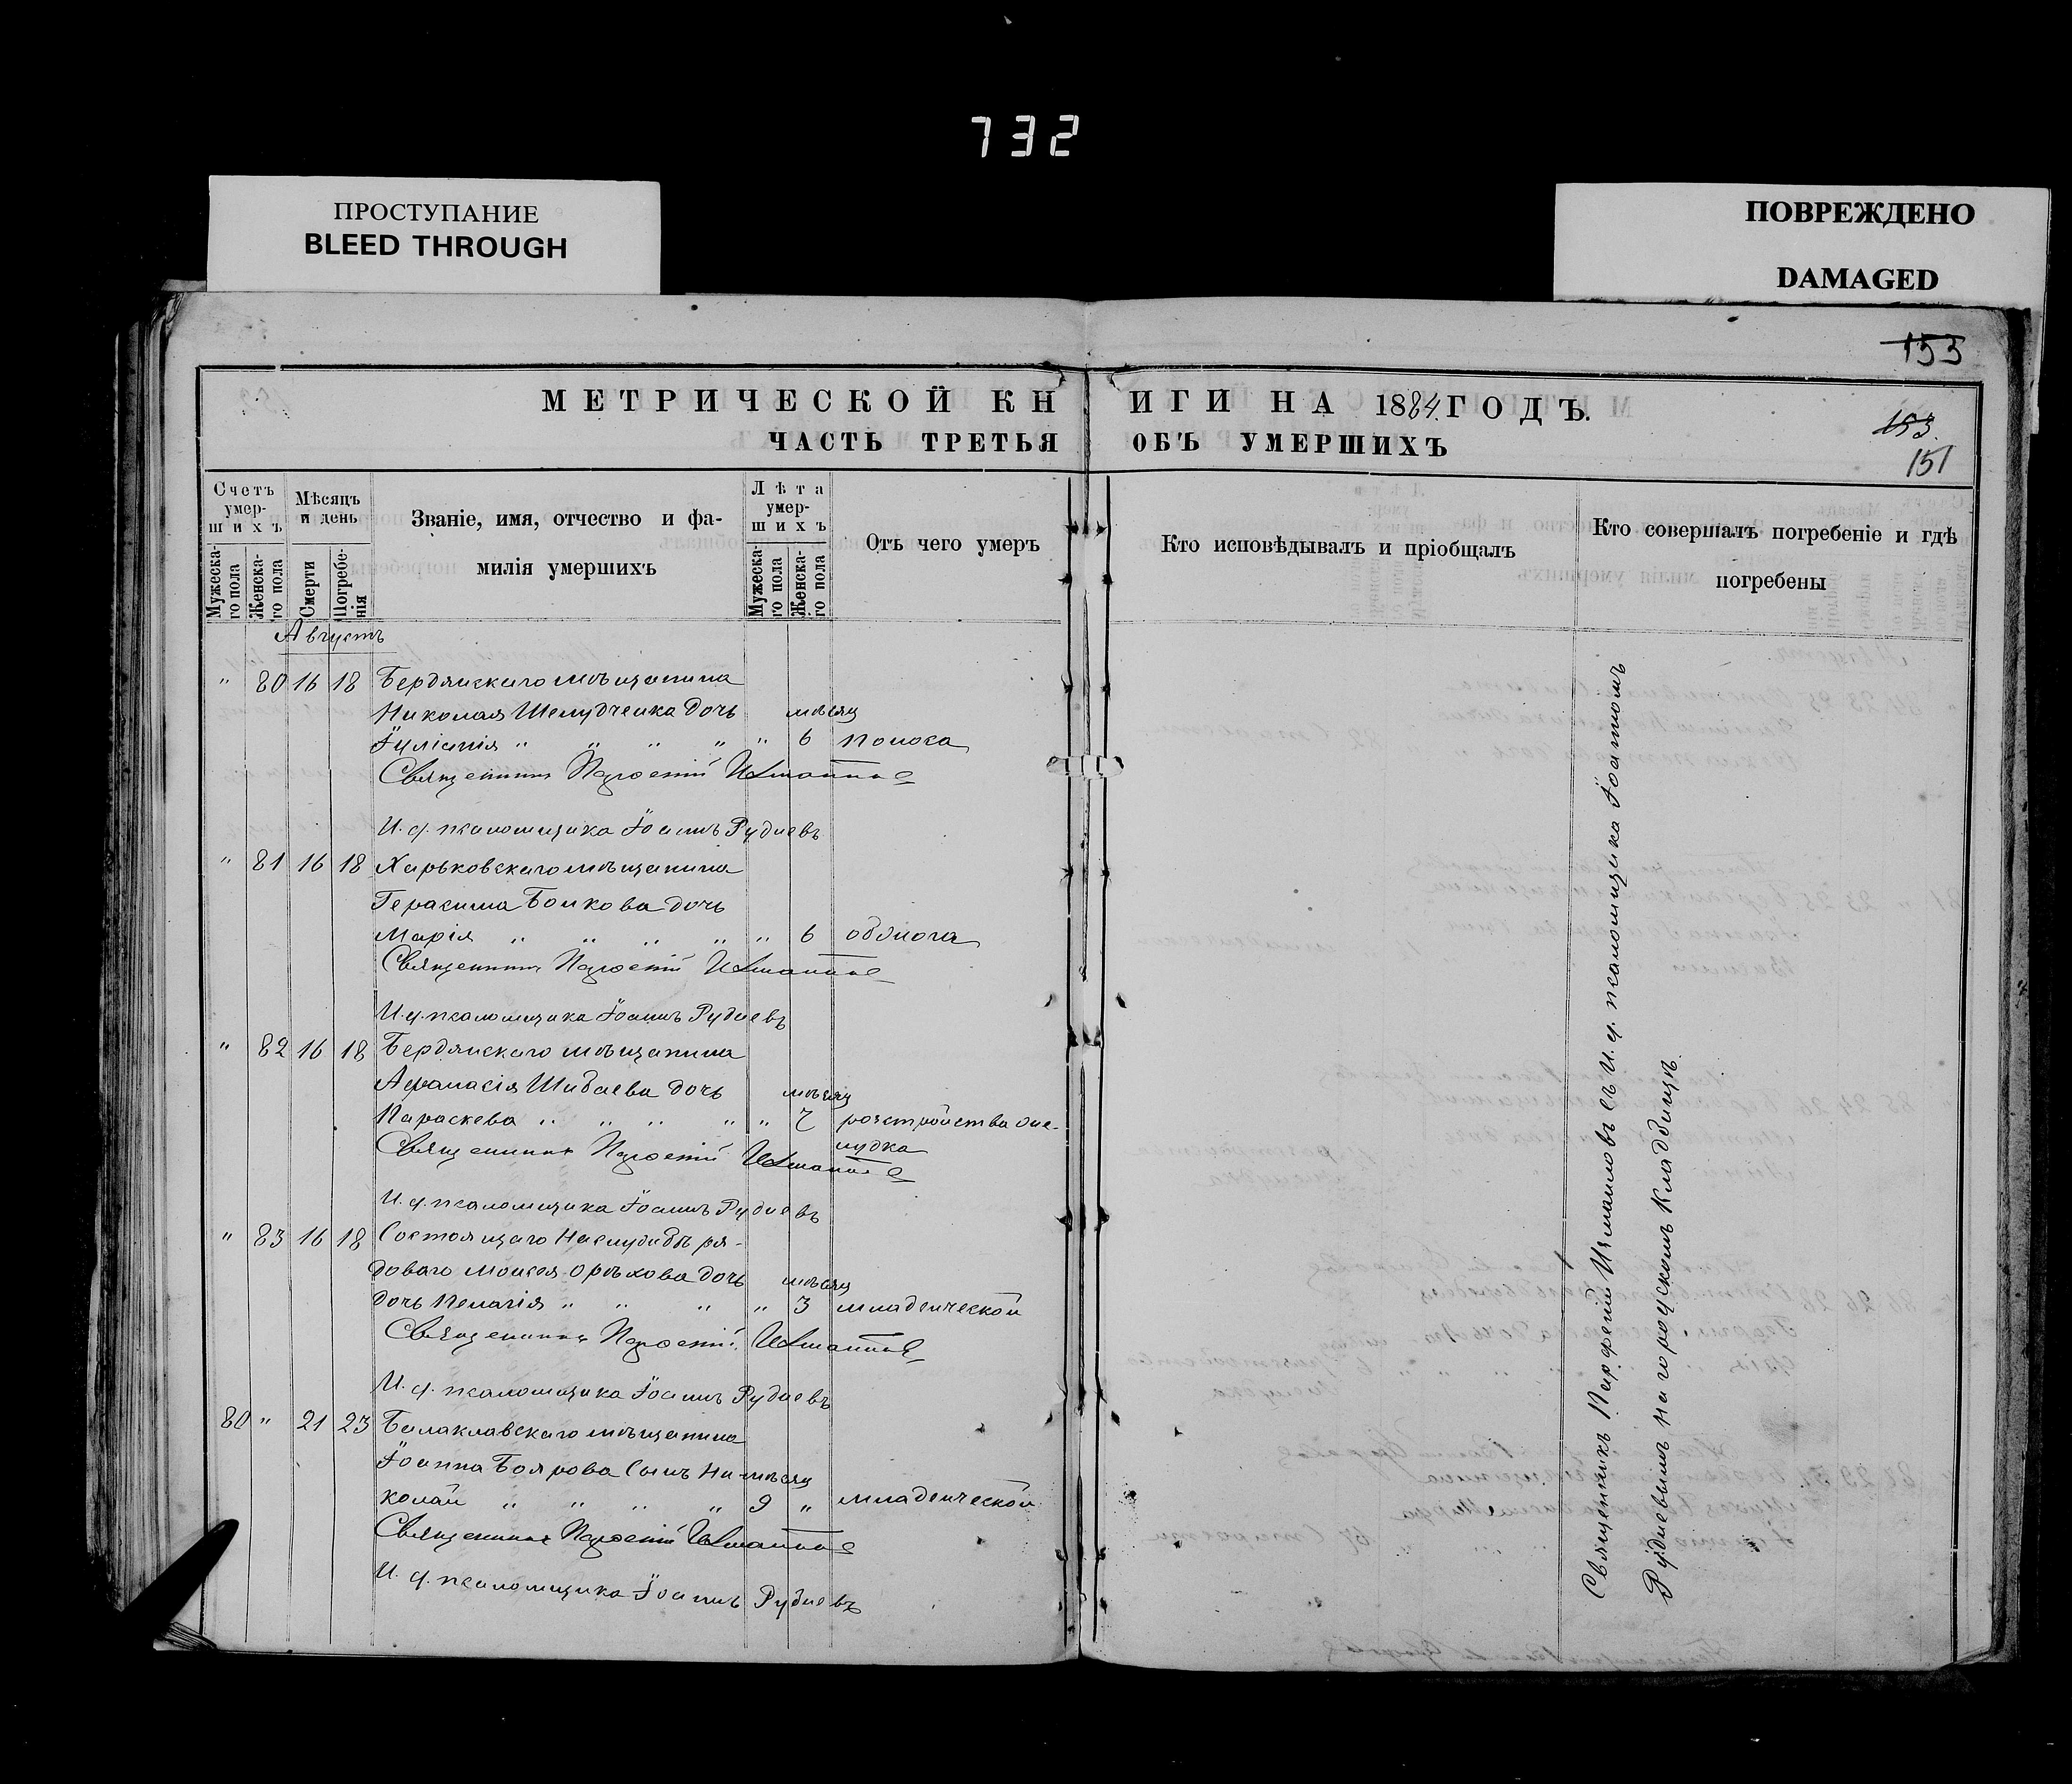 732
ПРОСТУПАНИЕ
BLEED THROUGH
ПОВРЕЖДЕНО
DAMAGED
153
МЕТРИЧЕСКОЙ КНИГИ НА 1884 ГОДЪ.
153.
ЧАСТЬ ТРЕТЬЯ ОБЪ УМЕРШИХЪ
151
Счетъ умер-шихъ
Мужеска-го пола
Женска-го пола
Мѣсяцъ и день
Смерти
Погребе-нія
Званіе, имя, отчество и фа-
милія умершихъ
Лѣта умер-шихъ
Мужеска-го пола
Женска-го пола
Отъ чего умеръ
Кто исповѣдывалъ и пріобщалъ
Кто совершалъ погребеніе и гдѣ
погребены
Августъ
" 80 16 18 Бердянскаго мѣщанина
Николая Шелудченка дочь мѣсяц
Іуліанія " " " " " 6 поноса
Священникъ Парѳеній
И. д. псаломщика Іоаннъ Рудневъ
" 81 16 18 Харьковскаго мѣщанина
Герасима Бойкова дочь
Марія " " " " " 6
Священникъ Парѳеній
И. д. псаломщика Іоаннъ Рудневъ
" 82 16 18 Бердянскаго мѣщанина
Аѳанасія Шибаева дочь мѣсяц
Параскева " " " " " 7 розстройства же-
лудка
Священникъ Парѳеній
И. д. псаломщика Іоаннъ Рудневъ
" 83 16 18 Состоящаго на службѣ ря-
доваго Моисея Орѣхова дочь мѣсяц
дочь Пелагія " " " " 3 младенческой
Священникъ Парѳеній
И. д. псаломщика Іоаннъ Рудневъ
80 " 21 23 Балаклавскаго мѣщанина
Іоанна Боярова сынъ Ни- мѣсяц
колай " " " " 9 " младенческой
Священникъ Парѳеній
И. д. псаломщика Іоаннъ Рудневъ
Священникъ Парѳеній Измаиловъ съ И. д. псаломщика Іоанномъ
Рудневымъ на городскомъ кладбищѣ.